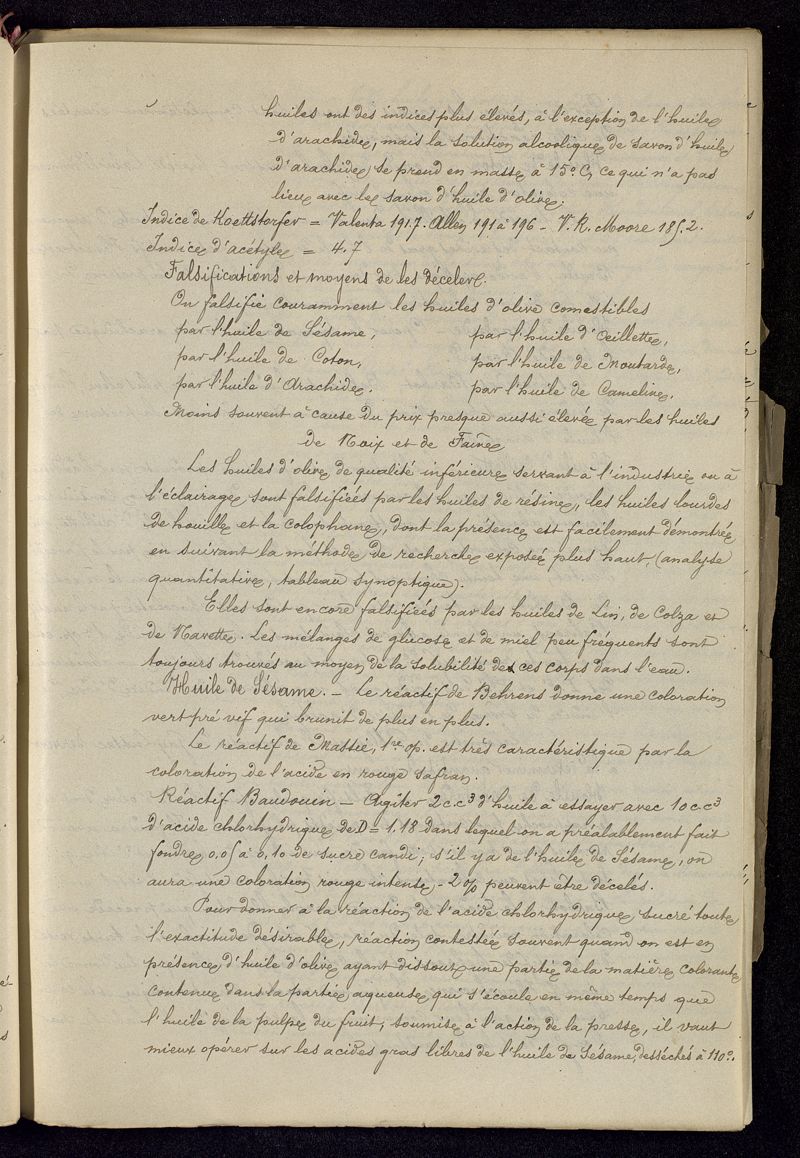 huiles ont des indices plus élevés, à l'exception de l'huile
d'arachide, mais la solution alcoolique de savon d'huile
d'arachide, se prend en masse à 15° C, ce qui n'a pas
lieu avec le savon d'huile d'olive.
Indice de Koettstorfer = Valenta 191.7. Allen 191 à 196 - V. R. Moore 185.2.
Indice d'acétyle = 4.7
Falsifications et moyens de les déceler.
On falsifie couramment les huiles d'olive comestibles
par l'huile de Sésame, par l'huile d'Œillette,
par l'huile de Coton, par l'huile de Moutarde,
par l'huile d'Arachide. par l'huile de Cameline.
Moins souvent à cause du prix presque aussi élevé par les huiles
de Noix et de Faîne
Les huiles d'olive de qualité inférieure servant à l'industrie ou à
l'éclairage sont falsifiées par les huiles de résine, les huiles lourdes
de houille et la colophane, dont la présence est facilement démontrée
en suivant la méthode de recherche exposée plus haut, (analyse
quantitative, tableau synoptique).
Elles sont encore falsifiées par les huiles de Lin, de Colza et
de Navette. Les mélanges de glucose et de miel peu fréquents sont
toujours trouvés au moyen de la solubilité de ces corps dans l'eau.
Huile de Sésame. - Le réactif de Behrens donne une coloration
vert pré vif qui brunit de plus en plus.
Le réactif de Massie, 1re op. est très caractéristique par la
coloration de l'acide en rouge safran.
Réactif Baudouin - Agiter 2 c.c3 d'huile à essayer avec 10 c.c3
d'acide chlorhydrique de D = 1.18 dans lequel on a préalablement fait
fondre 0,05 à 0,10 de sucre candi; s'il y a de l'huile de Sésame, on
aura une coloration rouge intense, - 2 % peuvent être décelés.
Pour donner à la réaction de l'acide chlorhydrique sucré toute
l'exactitude désirable, réaction contestée souvent quand on est en
présence d'huile d'olive ayant dissout une partie de la matière colorante
contenue dans la partie aqueuse qui s'écoule en même temps que
l'huile de la pulpe du fruit, soumise à l'action de la presse, il vaut
mieux opérer sur les acides gras libres de l'huile de Sésame, desséchés à 110°.